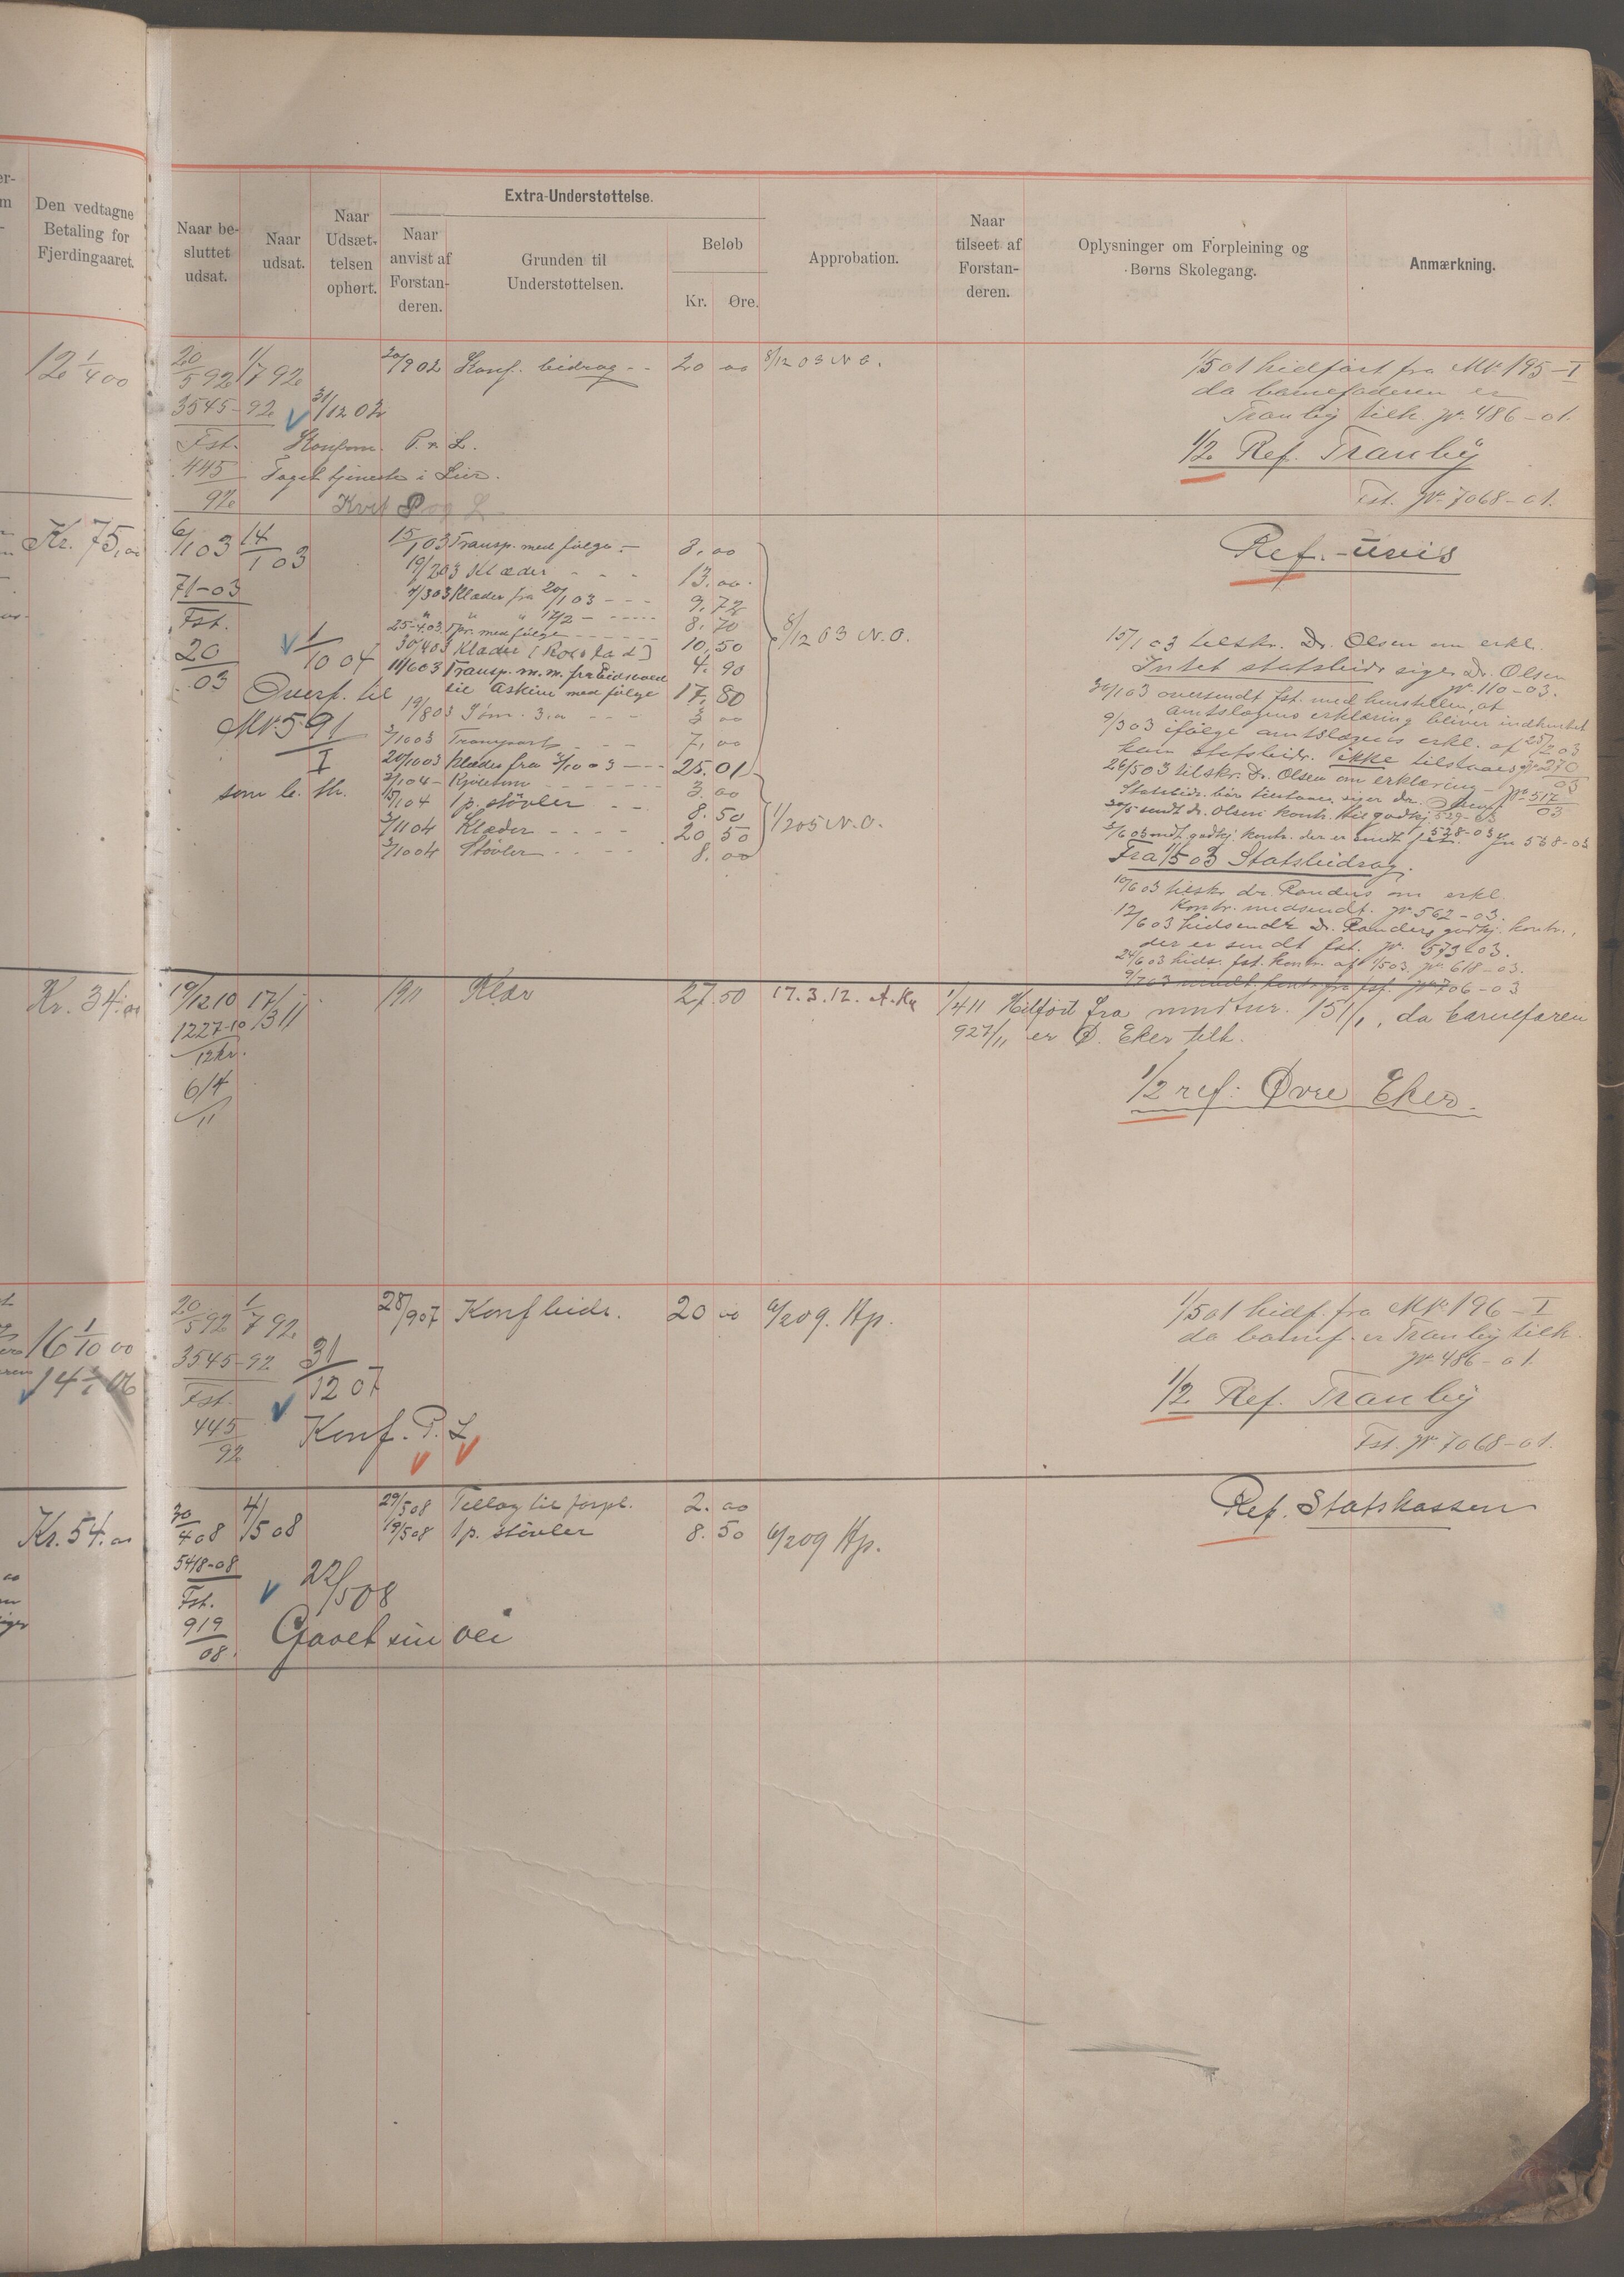 Den vedtagne
Betaling for
Fjerdingaaret.
Naar be-
sluttet
udsat.
Naar
udsat.
Naar
Udsæt-
telsen
ophørt.
Extra-Understøttelse.
Naar
anvist af
Forstan-
deren.
Grunden til
Understøttelsen.
Beløb
Kr. Øre.
Approbation.
Naar
tilseet af
Forstan-
deren.
Oplysninger om Forpleining og
Børns Skolegang.
Anmærkning.
12 1/4 00
20/5 92 1/7 92
3545-92
31/12 02
Fst.
445
92
Konfirm. P. & L.
Taget tjeneste i Lier.
Kvit P og L
20/9 02 Konf. bidrag -- 20 00 8/12 03 N.O.
1/5 01 hidført fra M№ 195-I
da barnefaderen er
Tranby tilh. Jr. 486-01.
1/2 Ref. Tranby
Fst. Jr. 7068-01.
Kr. 75,00
6/1 03 14/1 03
71-03
Fst.
20
03
1/10 04
Overf. til
M№ 591
I
som b. th.
15/1 03 Transp. med følge - 3,00
19/2 03 Klæder - - - 13,00
4/3 03 Klæder fra 20/1 03 - - - 9,72
" " " 17/2 - - - -
25-4.03. Tpr. med følge - - - - 8,70
30/4 03 Klæder [Rolstad] 10,50
11/6 03 Transp. m.m. fra Eidsvold 4.90
til Askim med følge 17,80
19/8 03 3 00
3/10 03 Transport - - - 7,00
20/10 03 Klæder fra 3/10 03 - - - 25.01
2/1 04 - Kjoletøi - - - - 3.00
15/1 04 1 p. støvler - - 8.50
3/11 04 Klæder - - - - 20 50
3/10 04 Støvler - - - - 8.00
8/12 03 N.O.
1/2 05 N.O.
Ref. - uvis
15/1 03 tilskr. Dr. Olsen om erkl.
Intet statsbidr. siger Dr. Olsen
Jr. 110-03.
30/1 03 oversendt fst. med henstillen, at
amtslægens erklæring bliver indhentet
9/3 03 ifølge amtslægens erkl. af 25/2 03
kan statsbidr. ikke tilstaaes Jr. 270/03
26/5 03 tilskr. Dr. Olsen om erklæring - Jr. 517/03
Statsbidr. bør tilstaaes, siger dr. Olsen
30/5 sendt dr. Olsen kontr. til godkj. 529-03
528-03
3/6 03 mdt. godkj. kontr. der er sendt fst. Jr 538-03
Fra 1/5 03 Statsbidrag.
10/6 03 tilskr. dr. Randers om erkl.
Kontr. medsendt. Jr. 562-03.
12/6 03 hidsendte Dr. Randers godkj. kontr.,
der er sendt fst. Jr. 579-03.
24/6 03 hids. fst. kontr. af 1/5 03. Jr. 618-03.
9/7 03 mødt. kontr. fra fst. Jr. 706-03
Kr. 34,00
19/12 10 17/3 11
1227-10
12kr.
6/4
11
1911 Klær 27.50 17.3.12. A.Kr
1/4 11 Hitført fra 151/1, da barnefaren
927/11 er Ø. Eker tilh.
1/2 ref: Øvre Eker.
16 1/10 00
14 1/1 06
20/5 92 1/7 92
3545-92
Fst.
445
92
31/12 07
Konf. P. L
28/9 07 Konf bidr. 20 00 6/2 09. Hp.
1/5 01 hidf. fra M№ 196-I
da barnef. er Tranby tilh.
Jr. 486-01.
1/2 Ref. Tranby
Fst. Jr. 7068-01.
Kr. 54,00
30/4 08 4/5 08
5418-08
Fst.
919
08.
22/5 08
Gaaet sin vei
29/5 08 Tillæg til forpl. 2.00
19/5 08 1 p. støvler 8.50 6/2 09 Hp.
Ref. Statskassen